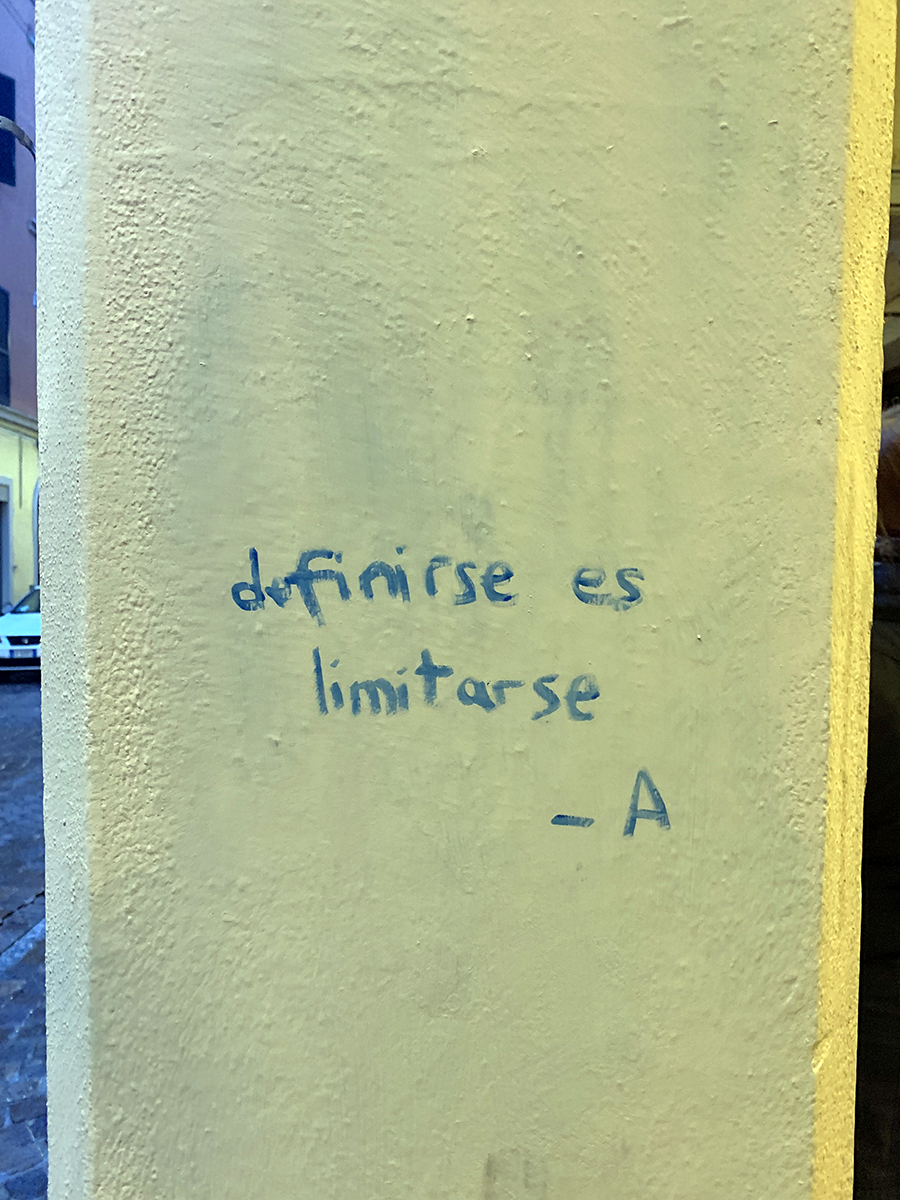 definirse es
limitarse
- A